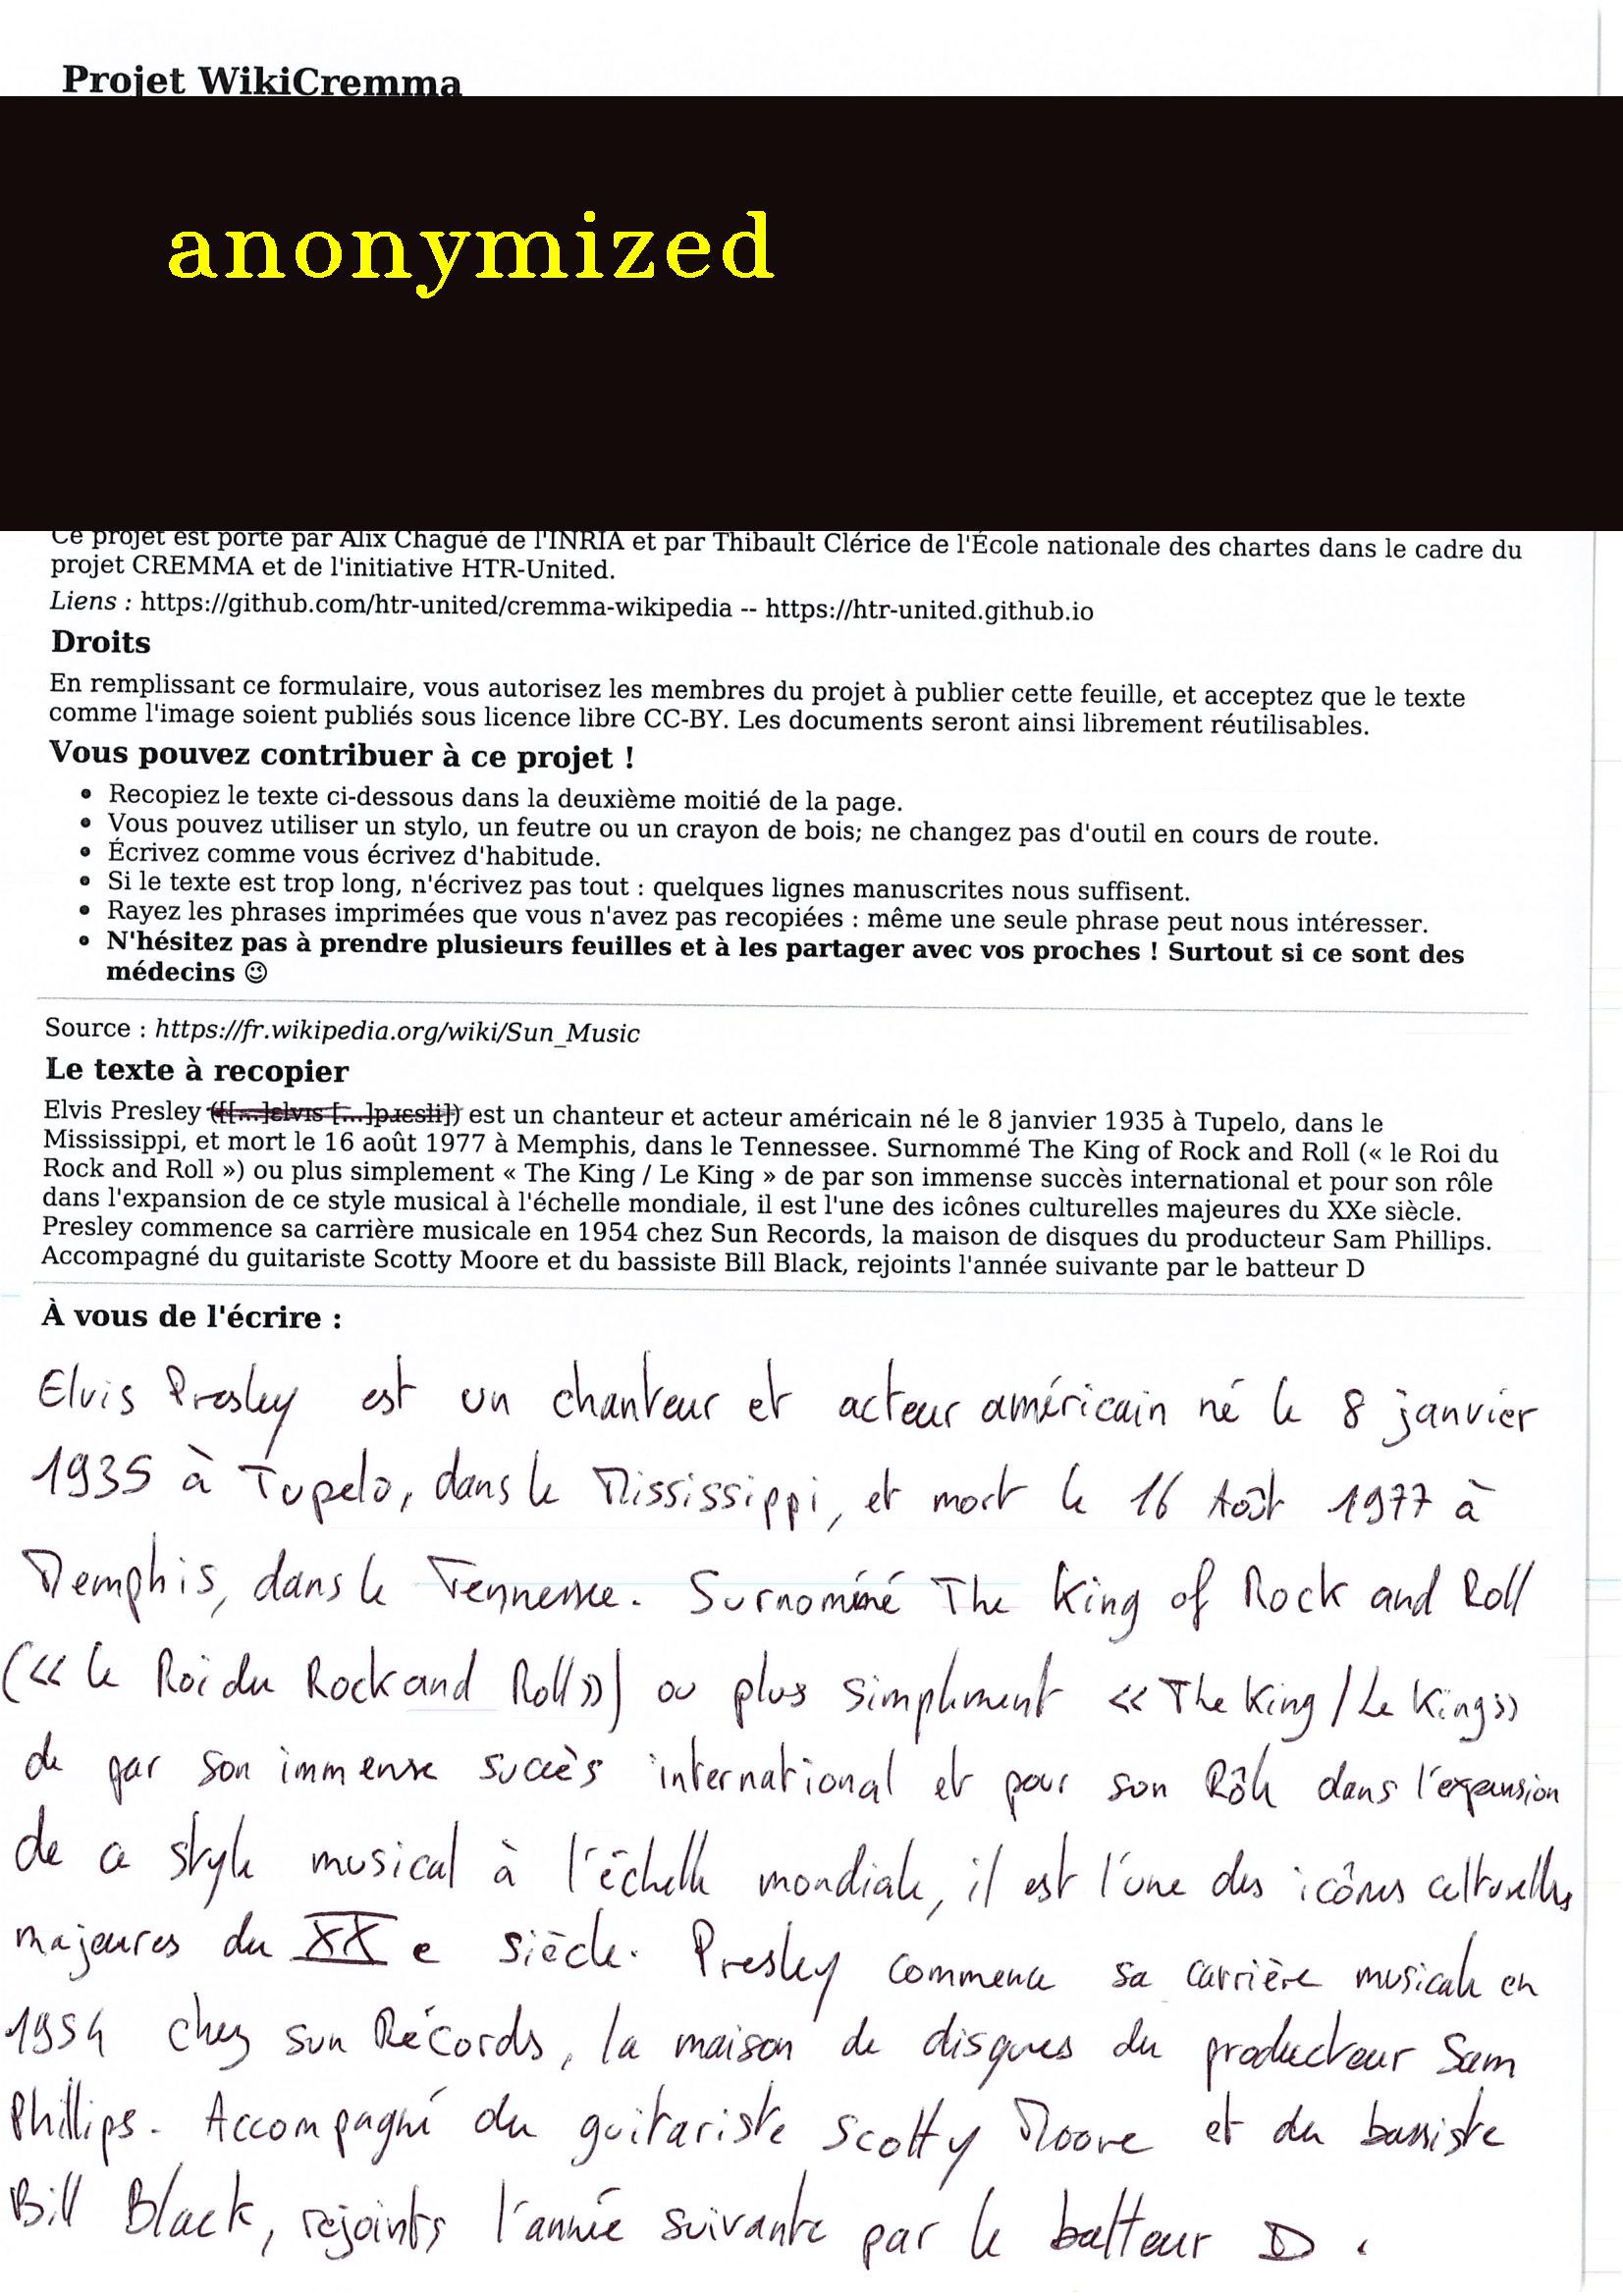 Projet WikiCremma
anonymized
Ce projet est porté par Alix Chagué de l'INRIA et par Thibault Clérice de l'École nationale des chartes dans le cadre du
projet CREMMA et de l'initiative HTR-United.
Liens : https://github.com/htr-united/cremma-wikipedia -- https://htr-united.github.io
Droits
En remplissant ce formulaire, vous autorisez les membres du projet à publier cette feuille, et acceptez que le texte
comme l'image soient publiés sous licence libre CC-BY. Les documents seront ainsi librement réutilisables.
Vous pouvez contribuer à ce projet !
• Recopiez le texte ci-dessous dans la deuxième moitié de la page.
• Vous pouvez utiliser un stylo, un feutre ou un crayon de bois; ne changez pas d'outil en cours de route.
• Écrivez comme vous écrivez d'habitude.
• Si le texte est trop long, n'écrivez pas tout : quelques lignes manuscrites nous suffisent.
• Rayez les phrases imprimées que vous n'avez pas recopiées : même une seule phrase peut nous intéresser.
• N'hésitez pas à prendre plusieurs feuilles et à les partager avec vos proches ! Surtout si ce sont des
médecins 😉
Source : https://fr.wikipedia.org/wiki/Sun_Music
Le texte à recopier
Elvis Presley ([[...]ɛlvɪs [...]pɹɛsli]) est un chanteur et acteur américain né le 8 janvier 1935 à Tupelo, dans le
Mississippi, et mort le 16 août 1977 à Memphis, dans le Tennessee. Surnommé The King of Rock and Roll (« le Roi du
Rock and Roll ») ou plus simplement « The King / Le King » de par son immense succès international et pour son rôle
dans l'expansion de ce style musical à l'échelle mondiale, il est l'une des icônes culturelles majeures du XXe siècle.
Presley commence sa carrière musicale en 1954 chez Sun Records, la maison de disques du producteur Sam Phillips.
Accompagné du guitariste Scotty Moore et du bassiste Bill Black, rejoints l'année suivante par le batteur D
À vous de l'écrire :
Elvis Presley est un chanteur et acteur américain né le 8 janvier
1935 à Tupelo, dans le Mississippi, et mort le 16 Août 1977 à
Memphis, dans le Tennessee. Surnommé The King of Rock and Roll
(« le Roi du Rock and Roll ») ou plus simplement « The King / Le King »
de par son immense succès international et pour son Rôle dans l'expansion
de ce style musical à l'échelle mondiale, il est l'une des icônes culturelles
majeures du XX e siècle. Presley commence sa carrière musicale en
1954 chez Sun Récords, la maison de disques du producteur Sam
Phillips. Accompagné du guitariste Scotty Moore et du bassiste
Bill Black, rejoints l'année suivante par le batteur D.